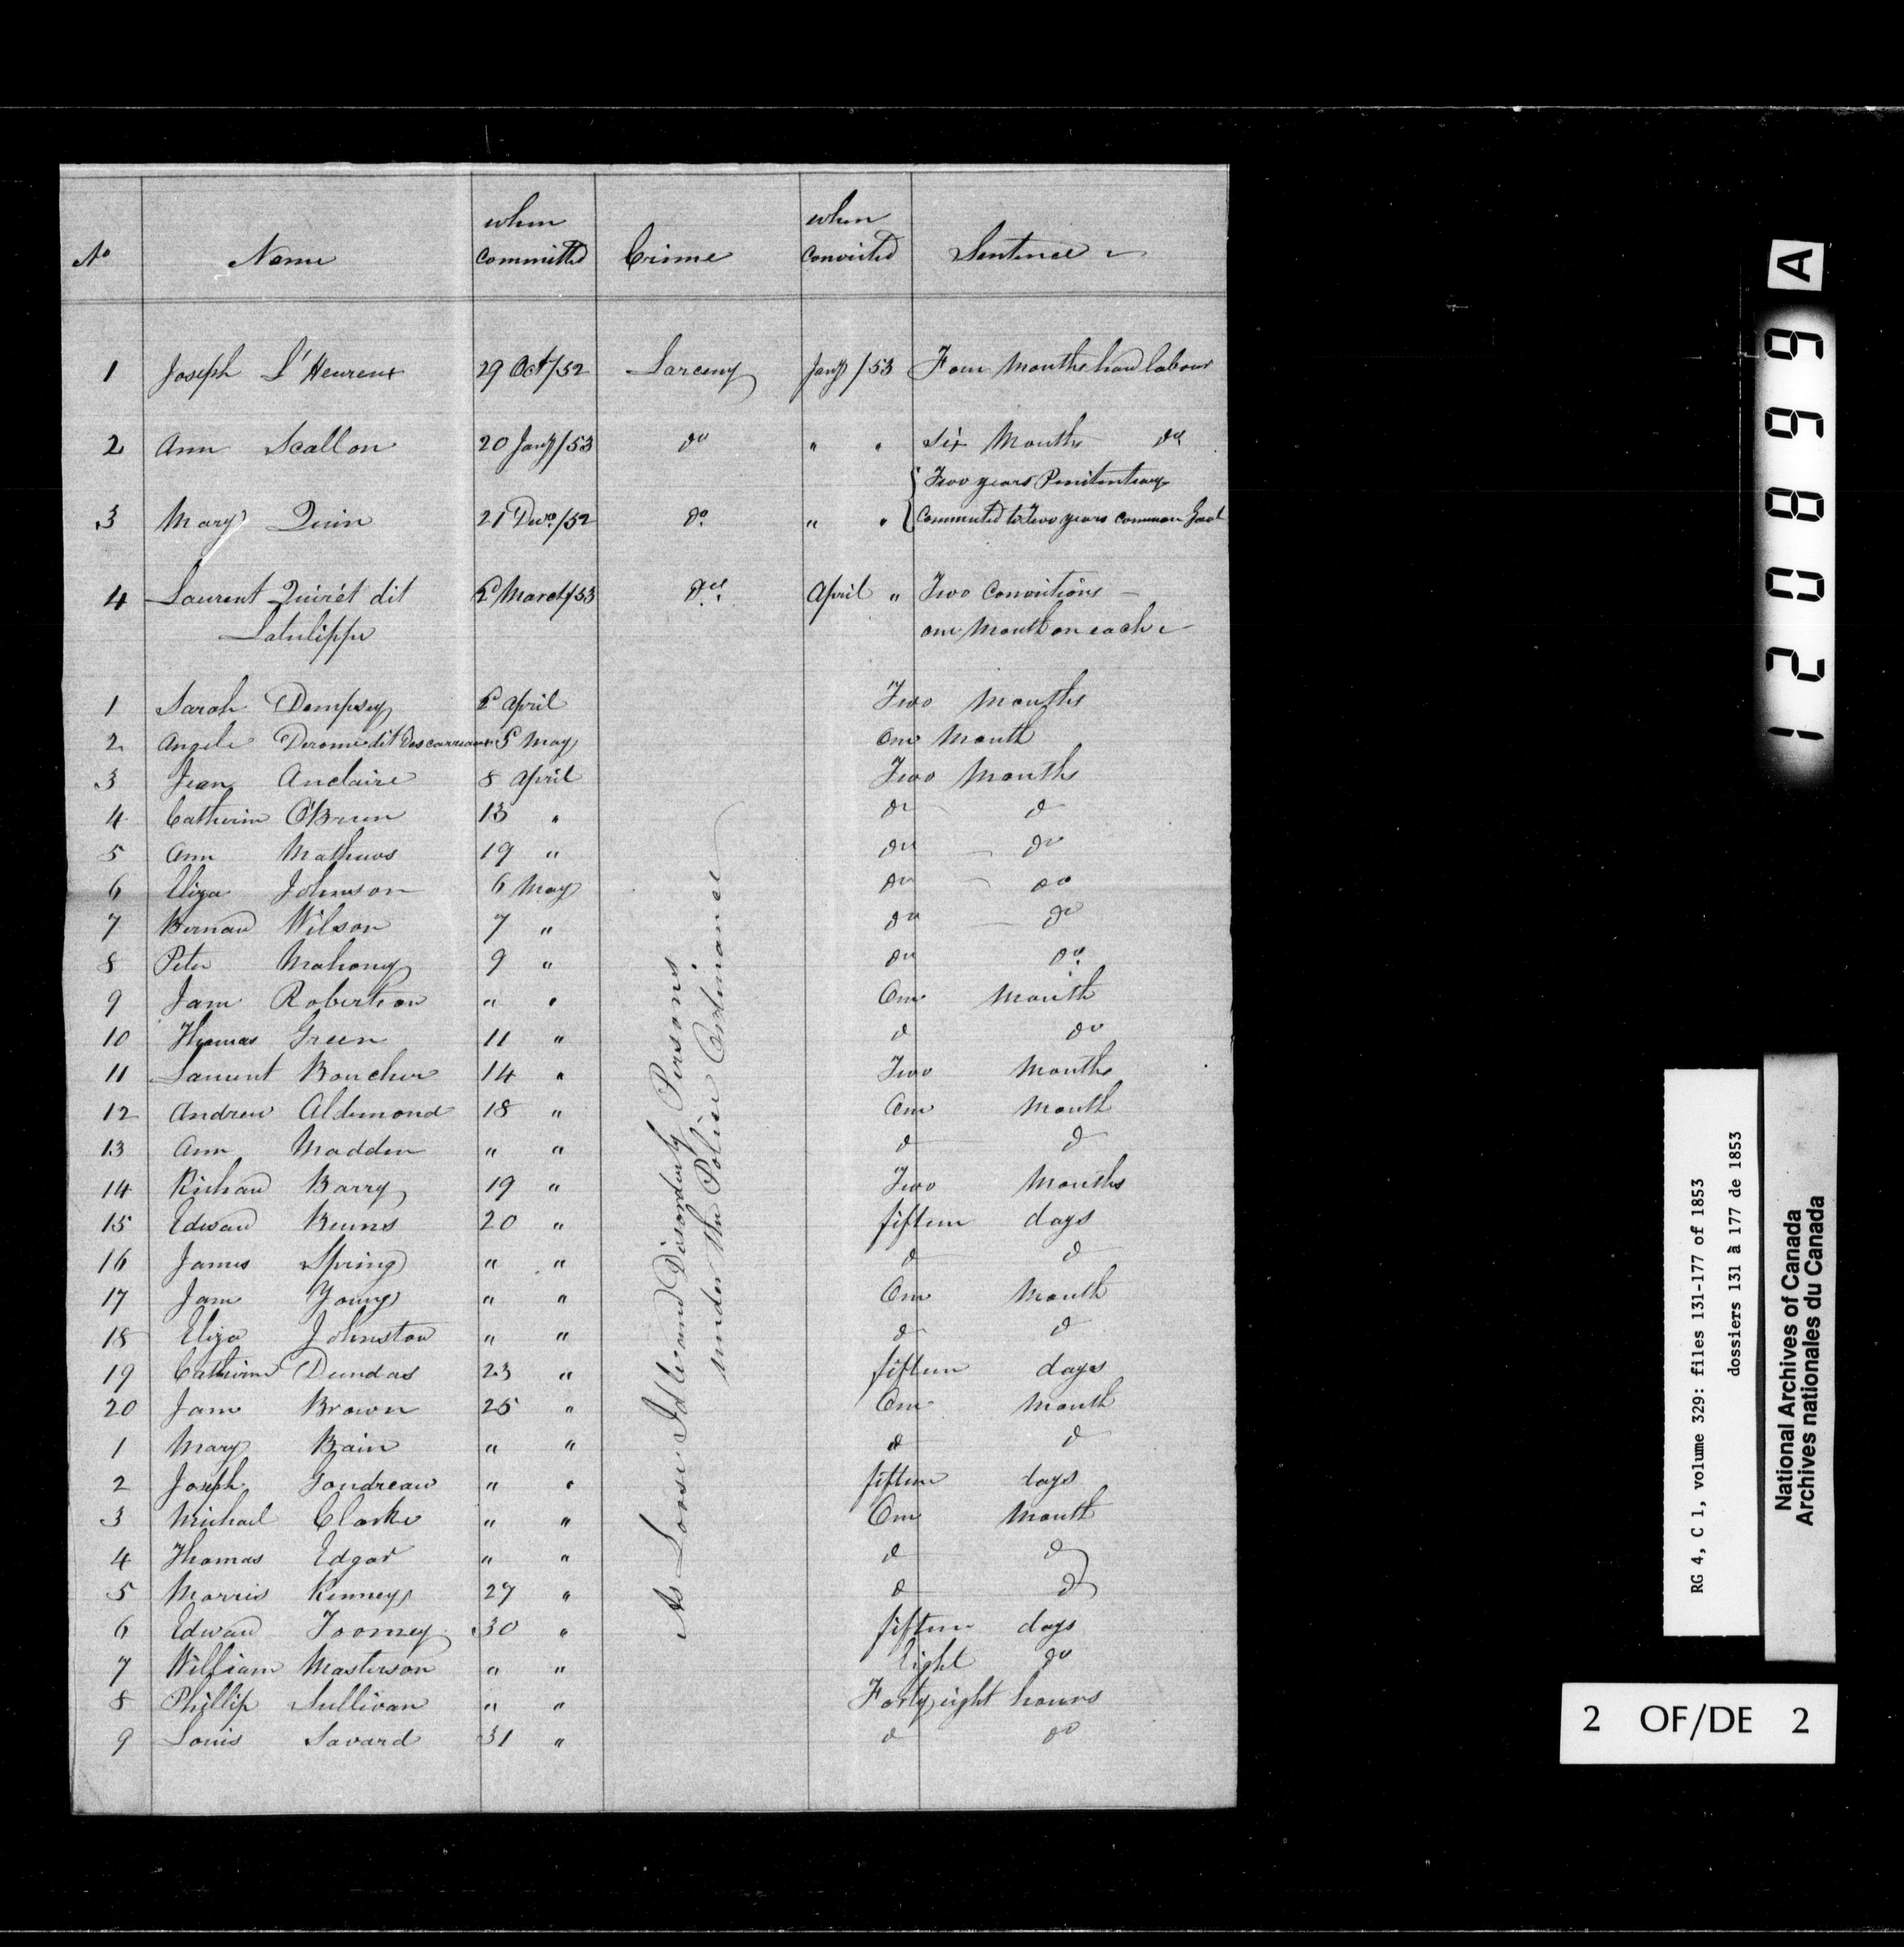 No Name when committed Crime when convicted Sentence
1 Joseph L'Heureux 29 Oct/52 Larceny Jany/53 Four Months hard labour
2 Ann Scallon 20 Jany/53 do " " Six Months do
3 Mary Quin 21 Decr/52 do " " { Two years Penitentiary
Commuted to Two years common Gaol
4 Laurent dit March/53 do April " Two Convictions –
Latulippe one Month on each
1 Sarah Dempsey April Two Months
2 Angele Derome dit Descarreaux 5 May One Month
3 Jean Anclaire 8 April Two Months
4 Catherine O'Brien 13 " do do
5 Ann Mathews 19 " do – do
6 Eliza Johnson 6 May do – do
7 Bernard Wilson 7 " do – do
8 Peter Mahony 9 " do do
9 Jane Robertson " " One Month
10 Thomas Green 11 " do do
11 Laurent Boucher 14 " Two Months
12 Andrew Aldemond 18 " One Month
13 Ann Madden " " do do
14 Richard Barry 19 " Two Months
15 Edward Burns 20 " fifteen days
16 James Spring " " do do
17 Jane Young " " One Month
18 Eliza Johnston " " do do
19 Catherine Dundas 23 " fifteen days
20 Jane Brown 25 " One Month
1 Mary Bain " " do do
2 Joseph Goudreau " " fifteen days
3 Michael Clarke " " One Month
4 Thomas Edgar " " do do
5 Morris Kenney 27 " do do
6 Edward Toomey 30 " fifteen days
7 William Masterson " " Eight do
8 Phillip Sullivan " " Forty eight hours
9 Louis Savard 31 " do do
As Loose Idle and Disorderly Persons
under the Police Ordinance
120899 A
RG 4, C 1, volume 329: files 131-177 of 1853
dossiers 131 à 177 de 1853
National Archives of Canada
Archives nationales du Canada
2 OF/DE 2